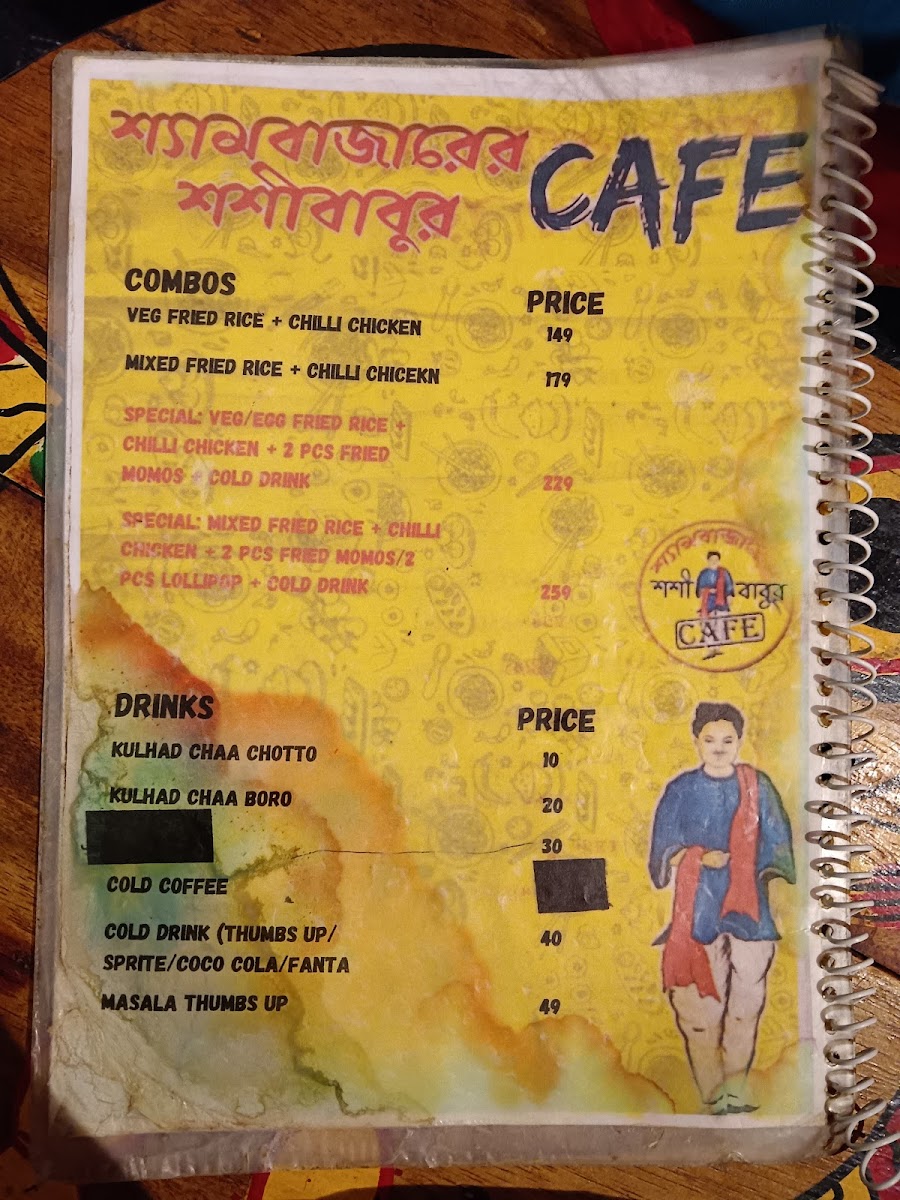 শ্যামবাজারের
শশীবাবুর
CAFE
COMBOS
PRICE
VEG FRIED RICE + CHILLI CHICKEN
149
MIXED FRIED RICE + CHILLI CHICEKN
179
SPECIAL: VEG/EGG FRIED RICE +
CHILLI CHICKEN + 2 PCS FRIED
MOMOS + COLD DRINK
229
SPECIAL: MIXED FRIED RICE + CHILLI
CHICKEN + 2 PCS FRIED MOMOS/2
PCS LOLLIPOP + COLD DRINK
259
শ্যামবাজারের
শশী বাবুর
CAFE
DRINKS
PRICE
KULHAD CHAA CHOTTO
10
KULHAD CHAA BORO
20
30
COLD COFFEE
COLD DRINK (THUMBS UP/
40
SPRITE/COCO COLA/FANTA
MASALA THUMBS UP
49